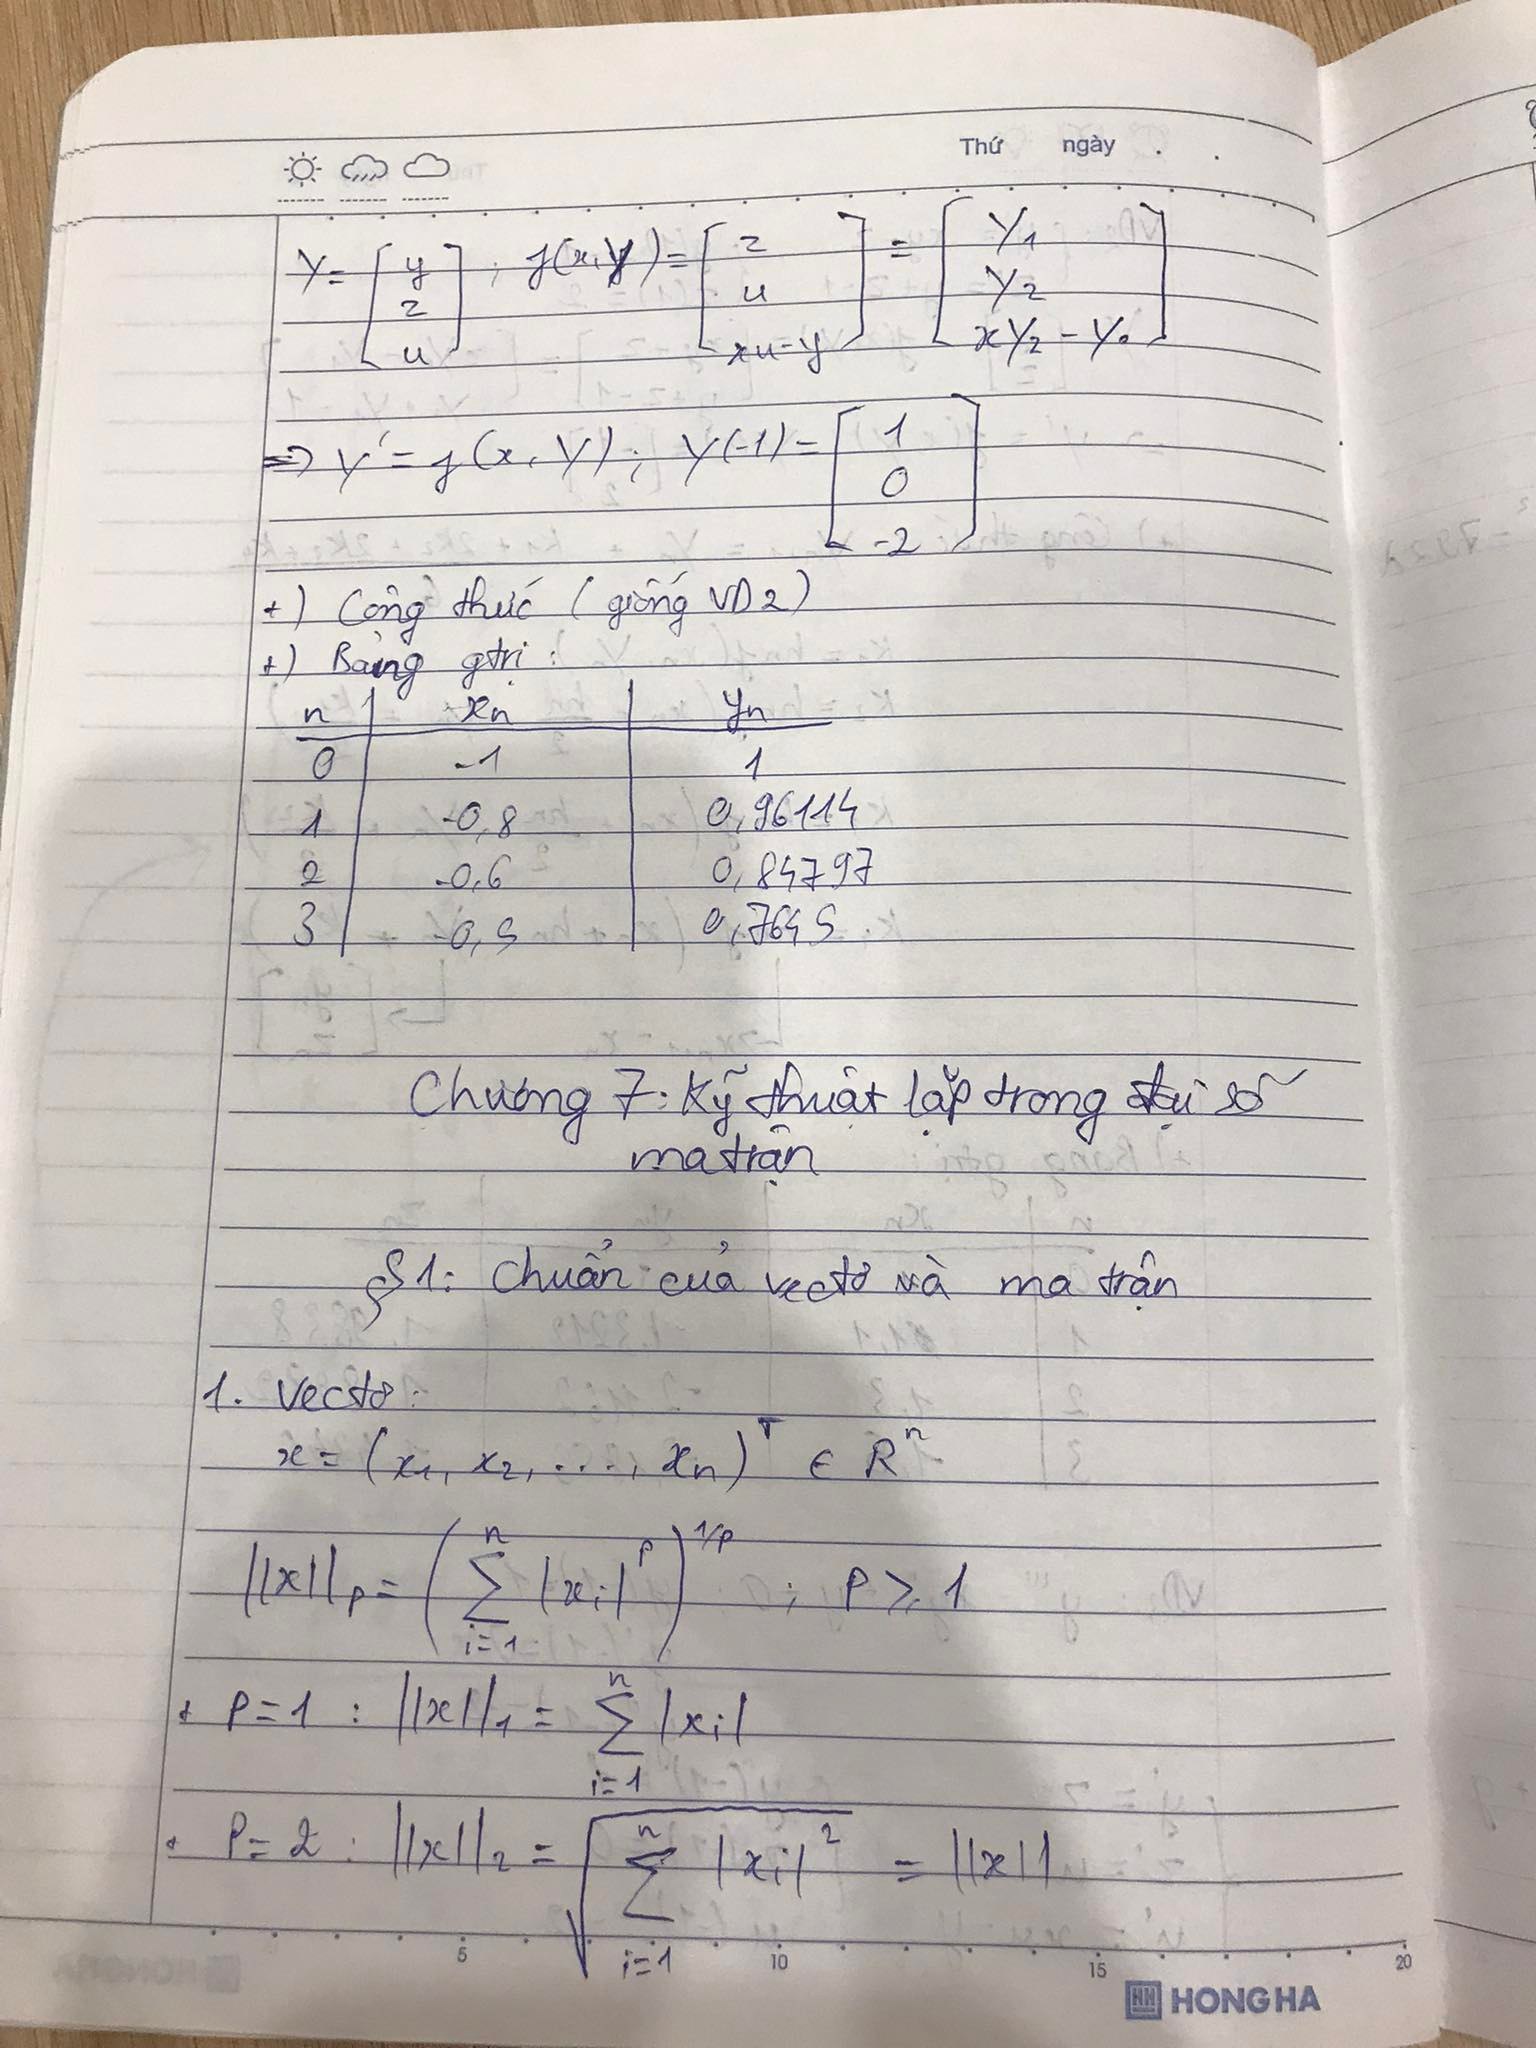 Thứ ngày
Y = [y; z; u] ; f(x, Y) = [z; u; xu - y] = [Y₁; Y₂; xY₂ - Y₀]
=> Y' = f(x, Y) ; Y(-1) = [1; 0; -2]
+) Công thức (giống VD2)
+) Bảng gtrị :
n xₙ yₙ
0 -1 1
1 -0,8 0,96114
2 -0,6 0,84797
3 -0,5 0,7645
Chương 7: Kỹ thuật lặp trong đại số
ma trận
§1: Chuẩn của vectơ và ma trận
1. Vectơ:
x = (x₁, x₂, ..., xₙ)ᵀ ∈ Rⁿ
||x||ₚ = (∑ⁿᵢ₌₁ |xᵢ|ᵖ)^1/p ; p ≥ 1
+ P=1 : ||x||₁ = ∑ⁿᵢ₌₁ |xᵢ|
+ P=2 : ||x||₂ = √(∑ⁿᵢ₌₁ |xᵢ|²) = ||x||
5 10 15 20
HH HONG HA